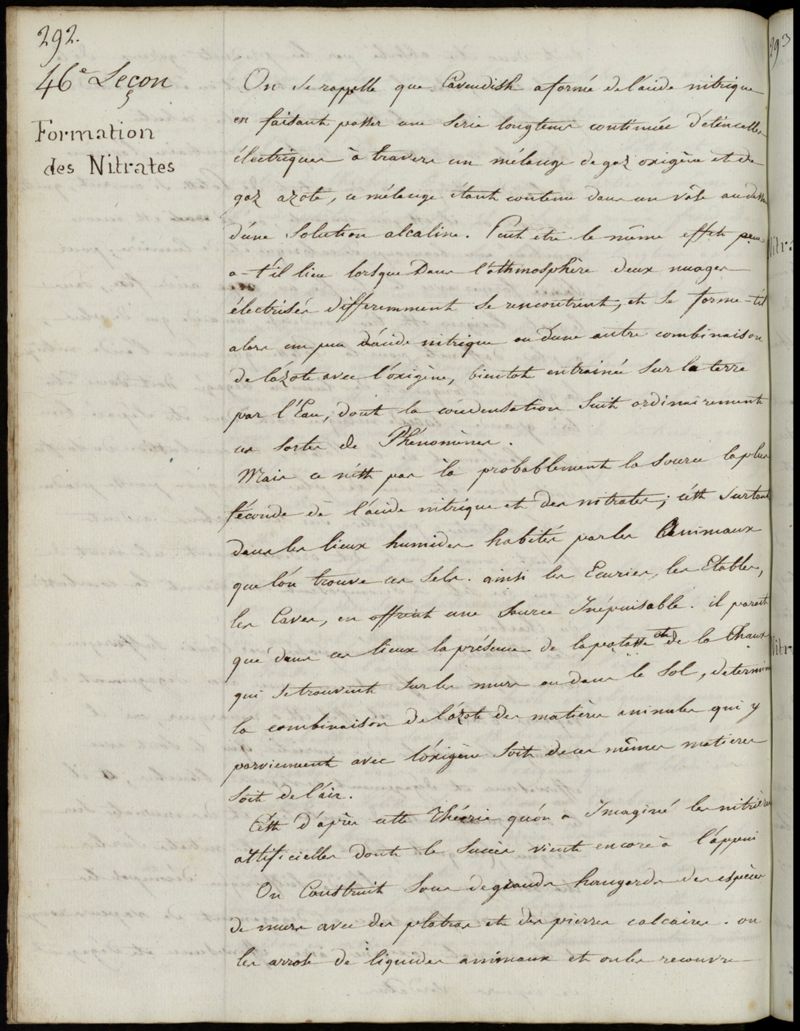 292.
46e Leçon
Formation
des Nitrates
On se rappelle que Cavendish a formé de l'acide nitrique
en faisant passer une serie longtems continuée d'étincelles
électriques à travers un mélange de gaz oxigène et de
gaz azote, ce mélange étant contenu dans un vase au dessus
d'une solution alcaline. Peut etre le même effet
a-t'il lieu lorsque dans l'athmosphère deux nuages
électrisés differemment se rencontrent, et se forme-t'il
alors un peu d'acide nitrique ou d'une autre combinaison
de l'azote avec l'oxigène, bientot entrainée sur la terre
par l'Eau, dont la condensation suit ordinairement
ces sortes de Phénomènes.
Mais ce n'est pas là probablement la source la plus
féconde de l'acide nitrique et des nitrates; c'est surtout
dans les lieux humides habités par les Animaux
que l'on trouve ces sels. ainsi les Ecuries, les Etables,
les Caves, en offrent une source Inépuisable. il parait
que dans ces lieux la présence de la potasse et de la Chaux
qui se trouvent sur les murs ou dans le sol, determine
la combinaison de l'azote des matières animales qui y
parviennent avec l'oxigène soit de ces mêmes matieres
soit de l'air.
C'est d'après cette théorie qu'on a Imaginé les nitrières
artificielles dont le succès vient encore à l'appui
On Construit sous de grands hangards des espèces
de murs avec des platras et des pierres calcaires. on
les arrose de liquides animaux et on les recouvre
293
Nitr
Nitr